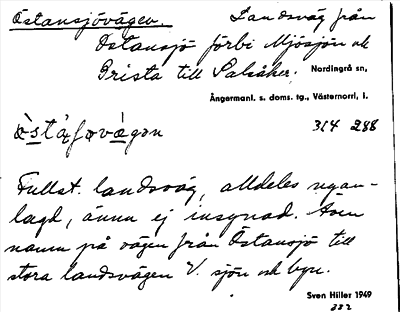 Östansjövägen. Landsväg från
Östansjö förbi Mjösjön och
Brista till Salsåker. Nordingrå sn,
Ångermanl. s. doms. tg., Västernorrl. l.
314 288
Fullst. landsväg, alldeles nyan-
lagd, ännu ej insynad. Även
namn på vägen från Östansjö till
stora landsvägen V. sjön och byn.
Sven Hiller 1949
332